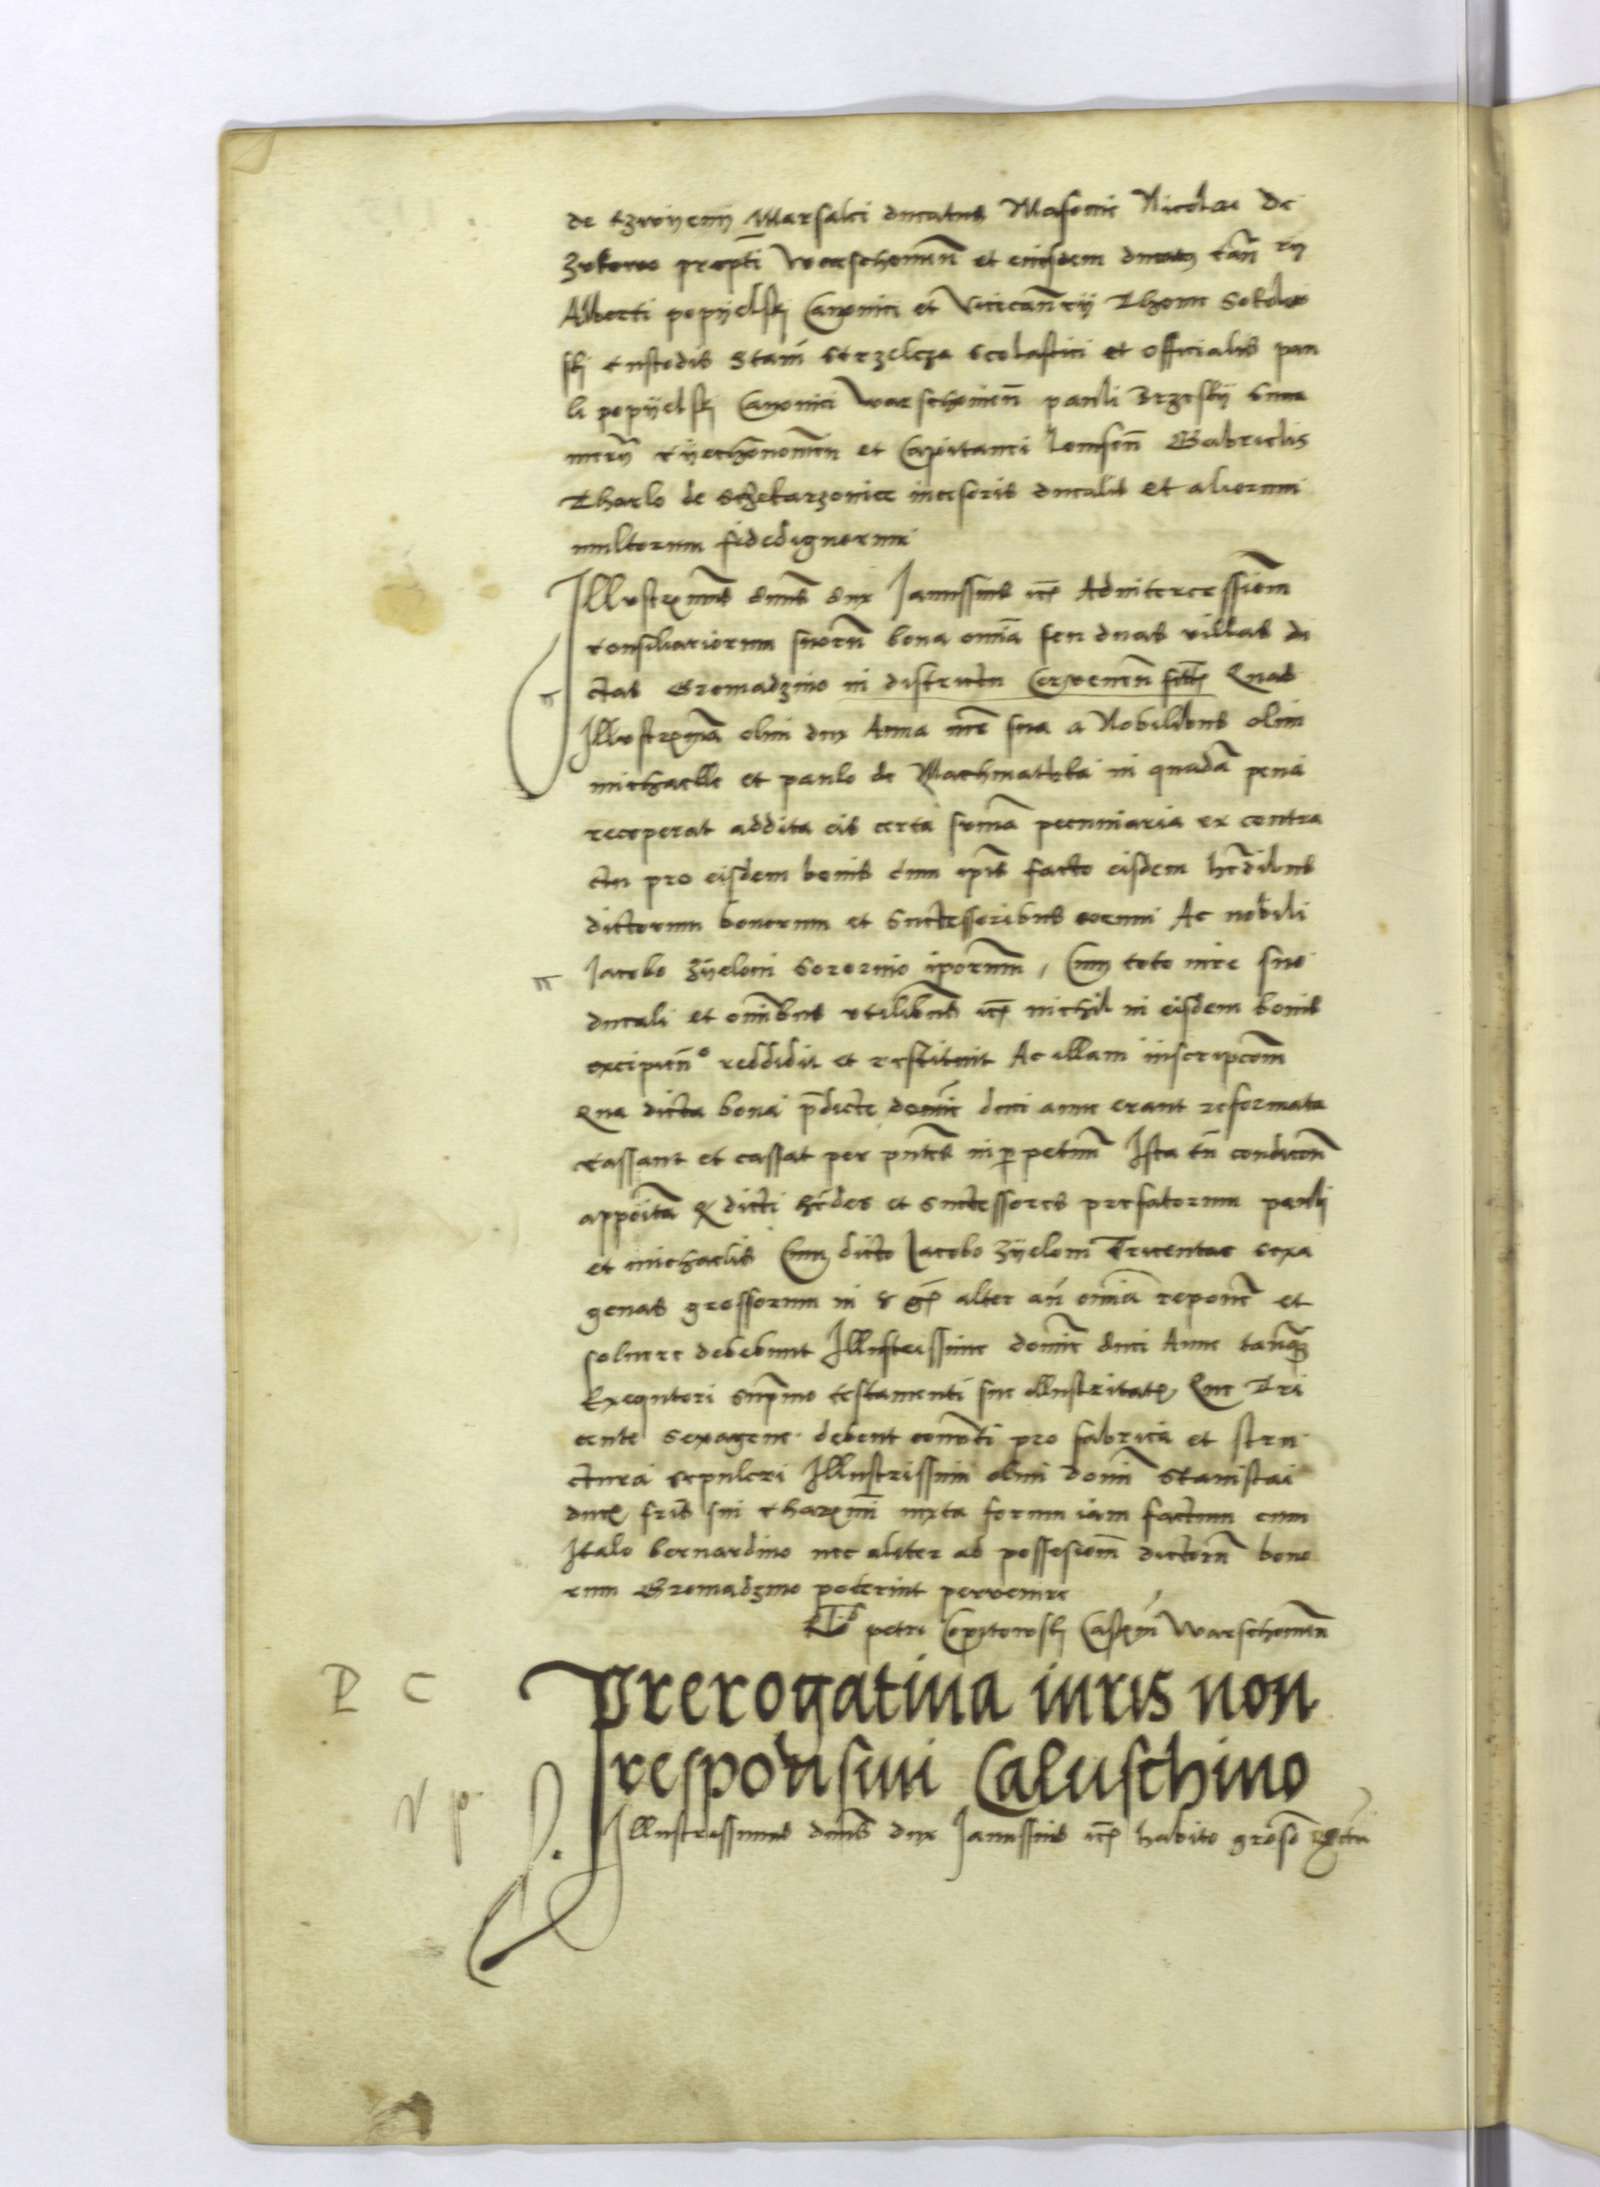 de Czwijenij Marsalci ducatus Masovie Nicolai De
Zukowo prepti Warschovien et eiusdem ducatus Can rij
Alberti popijelskj Canonici et Vicecanrij Thome Sokolow
skj Custodis Stani Strzelcza Scolastici et officialis pau
li popijelskj Canonici Warschovien pauli Brzeskij Suca
merij Czyechonovien et Capitanei Lomsen Gabrielis
Tharlo de Schekarzovice incisoris ducalis et aliorum
multorum fidedignorum
Illustrissimus dnus dux Janussius etc Ad intercessionem
consiliariorum suorum bona omnia seu duas villas di
ctas Gromadzino in districtu Czervenen sitas Quas
Illustrissima olim dux Anna mre sua a Nobilibus olim
michaele et paulo de in quadam pena
receperat addita eis certa summa pecuniaria ex contra
ctu pro eisdem bonis cum ipsis facto eisdem hrdibus
dictorum bonorum et Successoribus eorum Ac nobili
Jacobo Zijeloni Sororino ipsorum, Cum toto iure suo
ducali et omnibus utilibus etc nichil in eisdem bonis
excipien° reddidit et restituit Ac illam inscripcom
Qua dicta bona pdicte domine duci anne erant reformata
cassavit et cassat per pntes in perpetuum Ista tn condicon
apposita Quod dicti hrdes et Successores prefatorum pauli
et michaelis Cum dicto Jacobo Zijeloni Tricentas sexa
genas grossorum in alter an omnia reponere et
soluere debebunt Illustrissime domine duci Anne tanquam
Exequtori supremo testamenti sue illustritatis Que Tri
cente Sexagene debent converti pro fabrica et stru
ctura sepulcri Illustrissimi olim domini Stanislai
ducis fris sui charissimi iuxta forum iam factum cum
Italo bernardino nec aliter ad possesionem dictorum bono
rum Gromadzino poterint pervenire
petri Copitowskj Castellani Warschovien
P C
Prerogativa iuris non
responsivi Caluschino
V p.
Illustrissimus dnus dux Janussius etc habito